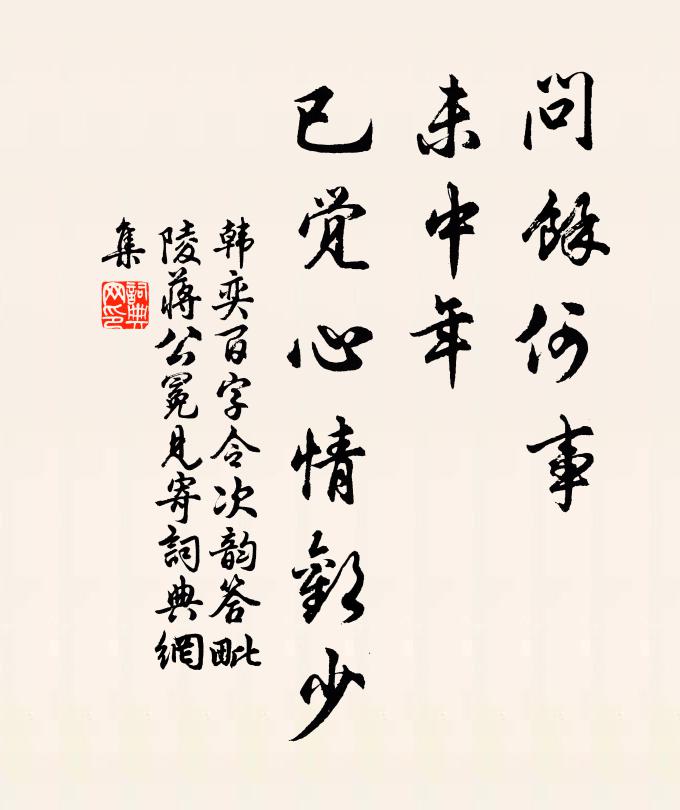 問餘何事
未中年
已觉心情歡少
韩奕百字令次韵答毗
陵蒋公冕見寄詞典網
集
詞典
网印